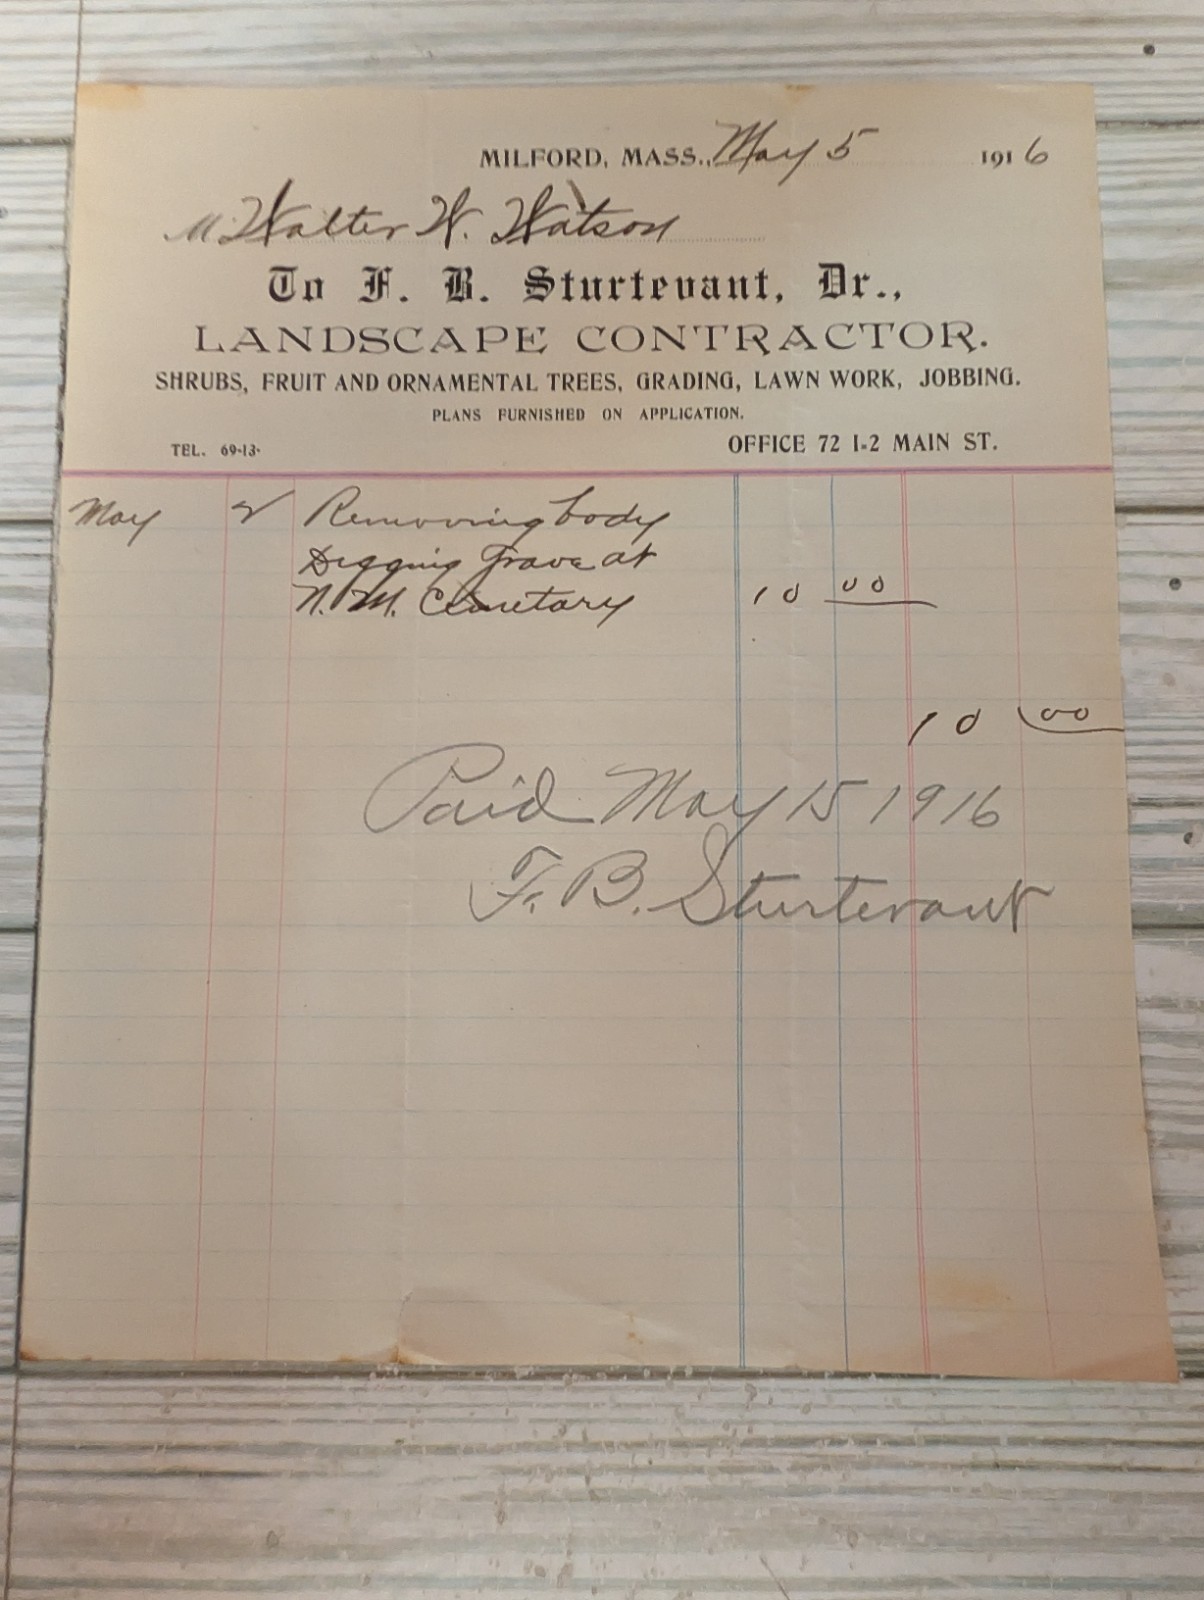 MILFORD, MASS., May 5 1916
M Walter W. Watson
To F. B. Sturtevant, Dr.,
LANDSCAPE CONTRACTOR.
SHRUBS, FRUIT AND ORNAMENTAL TREES, GRADING, LAWN WORK, JOBBING.
PLANS FURNISHED ON APPLICATION.
TEL. 69-13. OFFICE 72 1-2 MAIN ST.
May 2 Removing body
Digging Grave at
N. M. Cemetary 10 00
10 00
Paid May 15 1916
F. B. Sturtevant